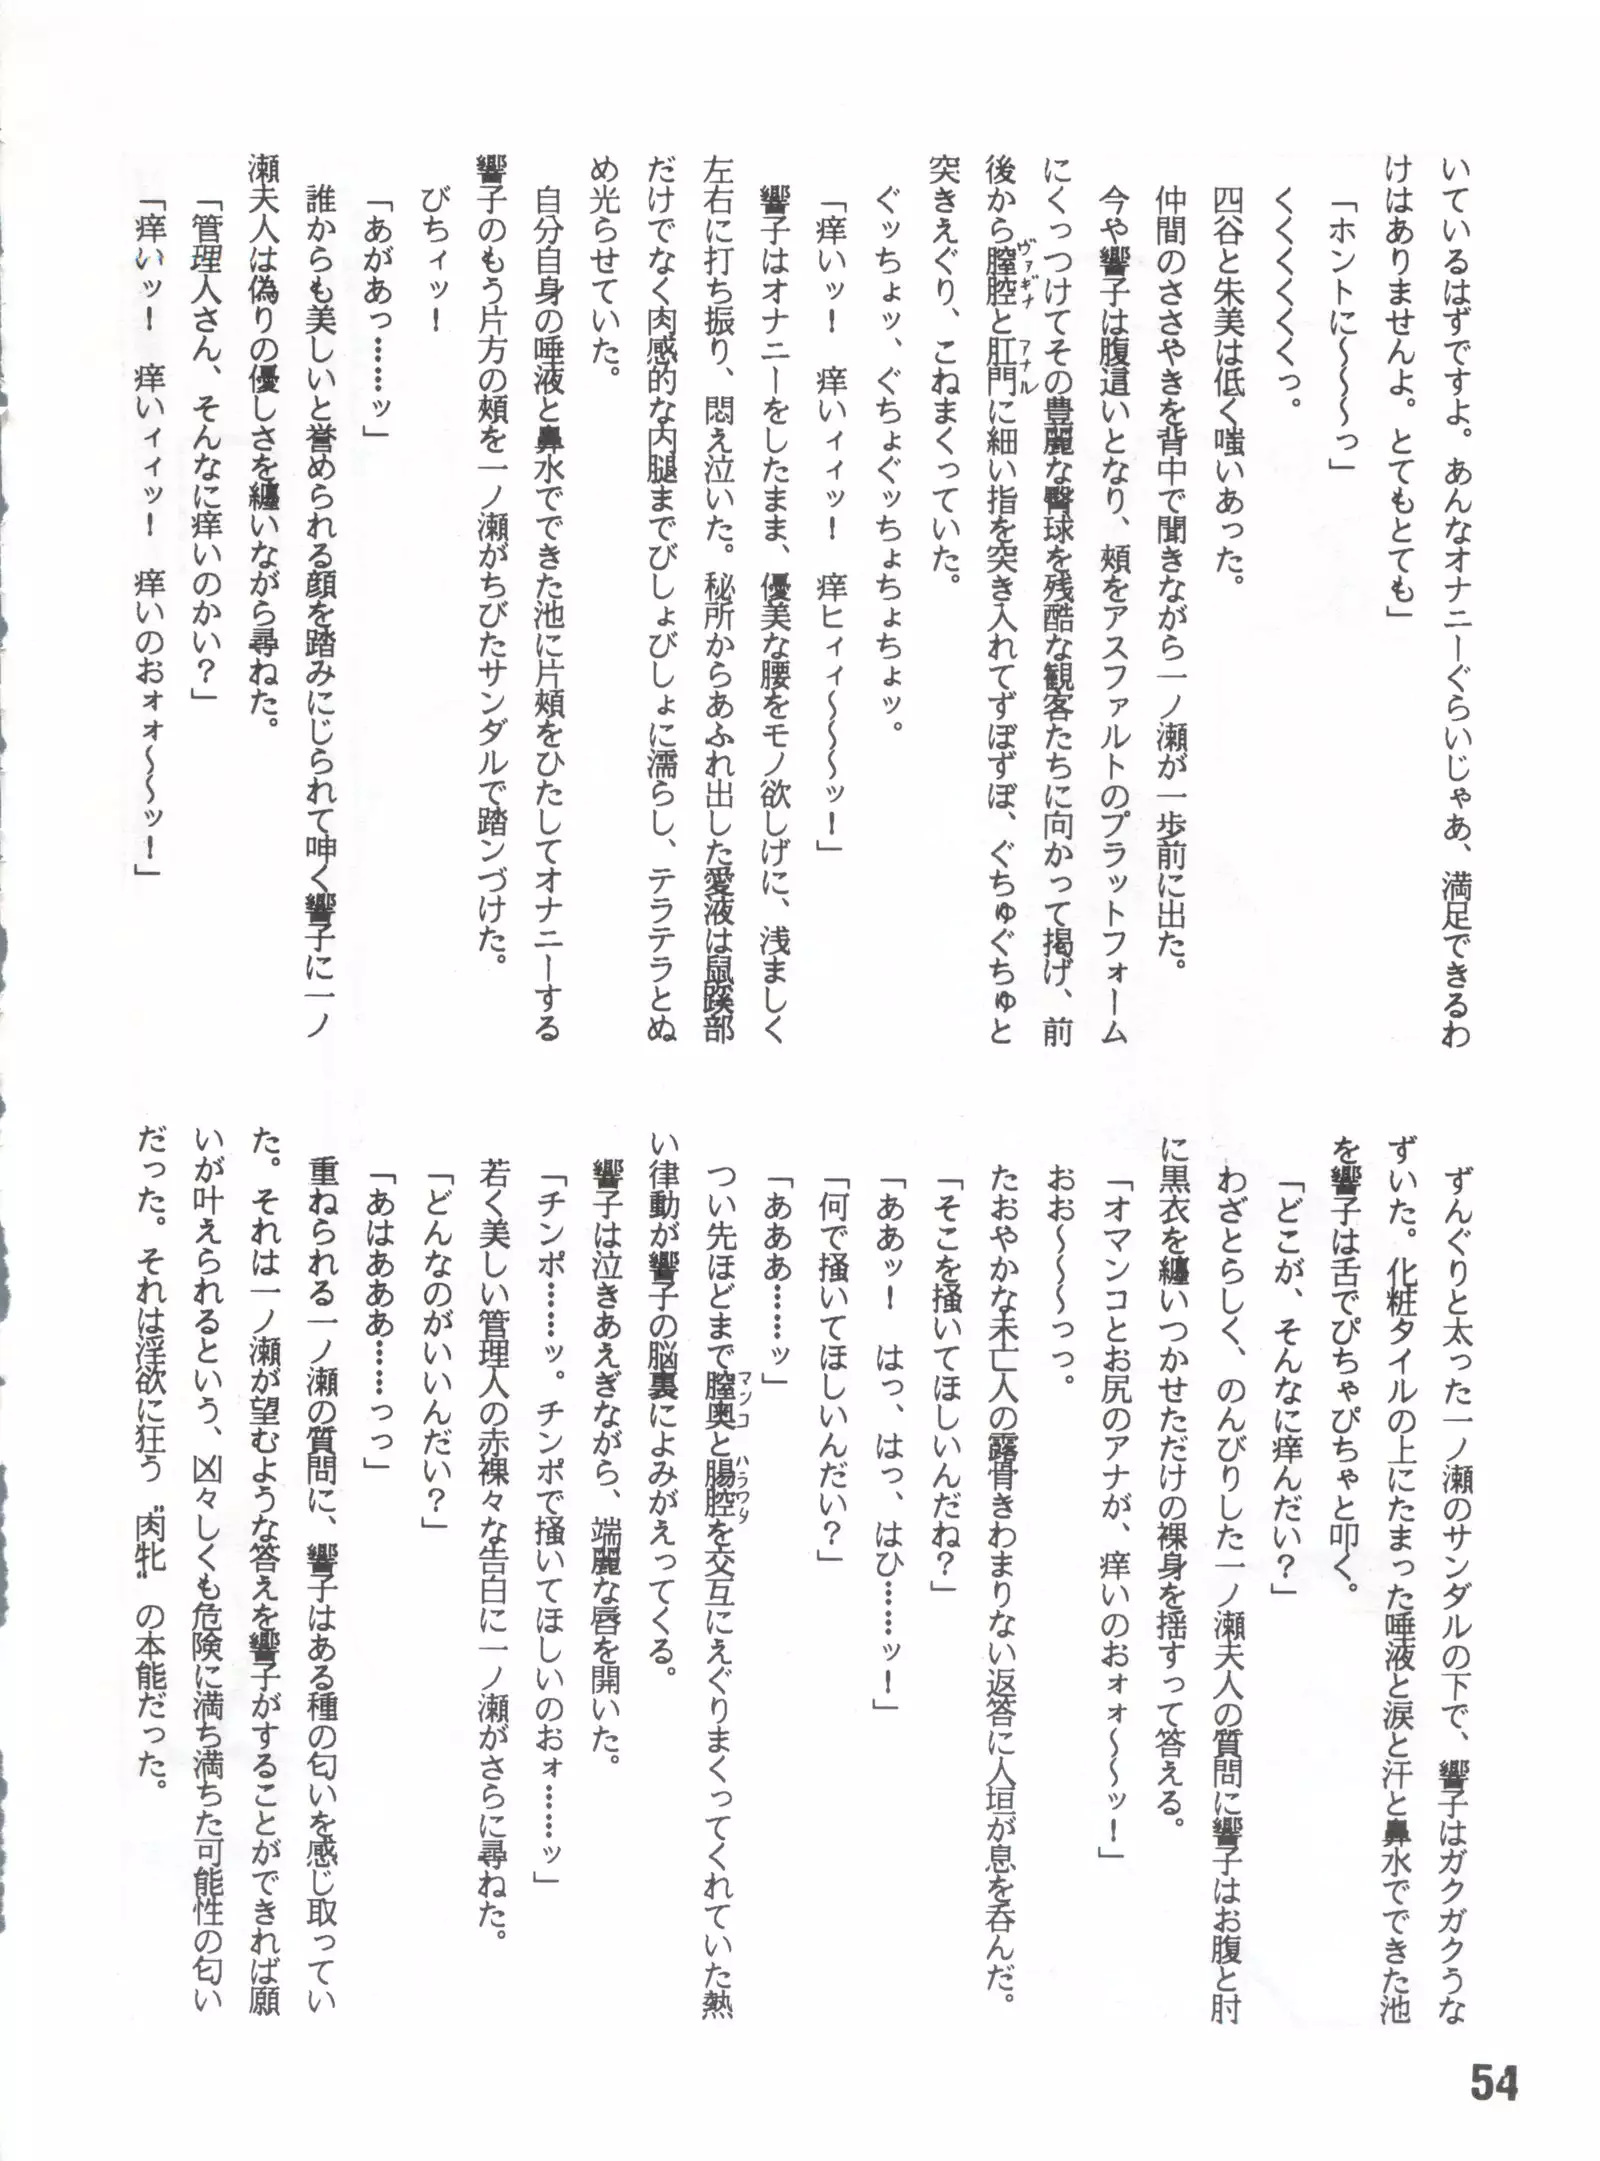 いているはずですよ。あんなオナニーぐらいじゃあ、満足できるわ
けはありませんよ。とてもとても」
「ホントに〜〜〜っ」
くくくくくっ。
四谷と朱美は低く嗤いあった。
仲間のささやきを背中で聞きながら一ノ瀬が一歩前に出た。
今や響子は腹這いとなり、頬をアスファルトのプラットフォーム
にくっつけてその豊麗な臀球を残酷な観客たちに向かって掲げ、前
ヴァギナ　アナル
後から膣腔と肛門に細い指を突き入れてずぼずぼ、ぐちゅぐちゅと
突きえぐり、こねまくっていた。
ぐッちょッ、ぐちょぐッちょちょちょッ。
「痒いッ！　痒いィィッ！　痒ヒィィ〜〜〜ッ！」
響子はオナニーをしたまま、優美な腰をモノ欲しげに、浅ましく
左右に打ち振り、悶え泣いた。秘所からあふれ出した愛液は鼠蹊部
だけでなく肉感的な内腿までびしょびしょに濡らし、テラテラとぬ
め光らせていた。
自分自身の唾液と鼻水でできた池に片頬をひたしてオナニーする
響子のもう片方の頬を一ノ瀬がちびたサンダルで踏ンづけた。
びちィッ！
「あがあっ……ッ」
誰からも美しいと誉められる顔を踏みにじられて呻く響子に一ノ
瀬夫人は偽りの優しさを纏いながら尋ねた。
「管理人さん、そんなに痒いのかい？」
「痒いッ！　痒いィィッ！　痒いのおォォ〜〜ッ！」
ずんぐりと太った一ノ瀬のサンダルの下で、響子はガクガクうな
ずいた。化粧タイルの上にたまった唾液と涙と汗と鼻水でできた池
を響子は舌でぴちゃぴちゃと叩く。
「どこが、そんなに痒んだい？」
わざとらしく、のんびりした一ノ瀬夫人の質問に響子はお腹と肘
に黒衣を纏いつかせただけの裸身を揺すって答える。
「オマンコとお尻のアナが、痒いのおォォ〜〜ッ！」
おお〜〜〜っっ。
たおやかな未亡人の露骨きわまりない返答に人垣が息を呑んだ。
「そこを掻いてほしいんだね？」
「ああッ！　はっ、はっ、はひ……ッ！」
「何で掻いてほしいんだい？」
「あああ……ッ」
マンコ　ハラワタ
つい先ほどまで膣奥と腸腔を交互にえぐりまくってくれていた熱
い律動が響子の脳裏によみがえってくる。
響子は泣きあえぎながら、端麗な唇を開いた。
「チンポ……ッ。チンポで掻いてほしいのおォ……ッ」
若く美しい管理人の赤裸々な告白に一ノ瀬がさらに尋ねた。
「どんなのがいいんだい？」
「あはあああ……っっ」
重ねられる一ノ瀬の質問に、響子はある種の匂いを感じ取ってい
た。それは一ノ瀬が望むような答えを響子がすることができれば願
いが叶えられるという、凶々しくも危険に満ち満ちた可能性の匂い
だった。それは淫欲に狂う〝肉牝〟の本能だった。
54